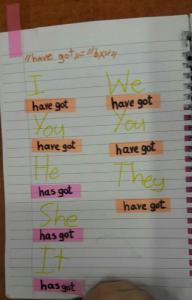 "have got" = "έχω"
I We
have got have got
You You
have got have got
He They
has got
have got
She
has got
It
has got